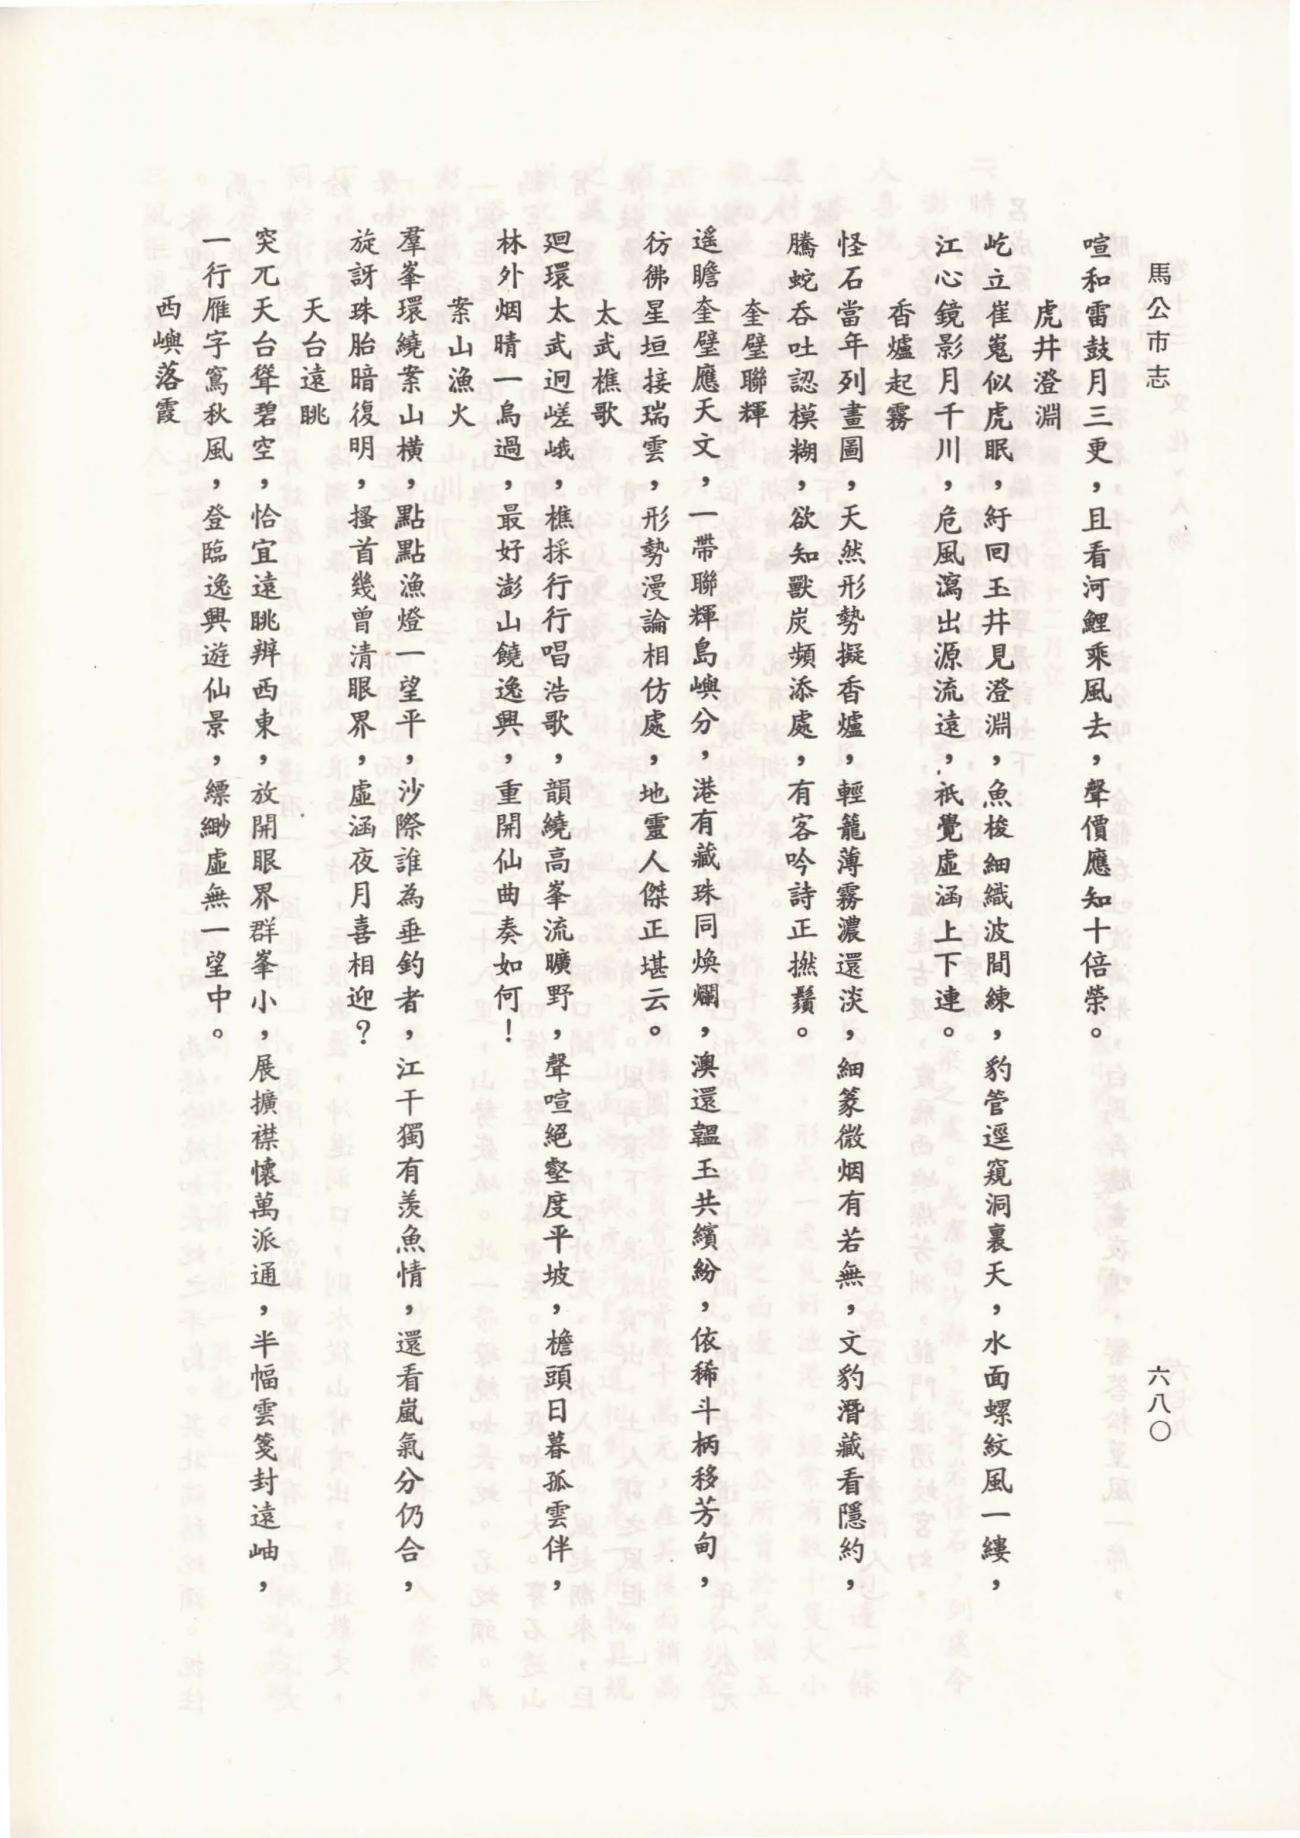 馬公市志
六八〇
喧和雷鼓月三更，且看河鯉乘風去，聲價應知十倍榮。
虎井澄淵
屹立崔嵬似虎眠，紆回玉井見澄淵，魚梭細織波間練，豹管遥窺洞裏天，水面螺紋風一縷，
江心鏡影月千川，危風瀉出源流遠，祇覺虛涵上下連。
香爐起霧
怪石當年列畫圖，天然形勢擬香爐，輕籠薄霧濃還淡，細篆微烟有若無，文豹潛藏看隱約，
騰蛇吞吐認模糊，欲知獸炭頻添處，有客吟詩正撚鬚。
奎璧聯輝
遥瞻奎璧應天文，一帶聯輝島嶼分，港有藏珠同煥爛，澳還韞玉共繽紛，依稀斗柄移芳甸，
彷彿星垣接瑞雲，形勢漫論相仿處，地靈人傑正堪云。
太武樵歌
廻環太武迥嵯峨，樵採行行唱浩歌，韻繞高峯流曠野，聲喧絕壑度平坡，檐頭日暮孤雲伴，
林外烟晴一鳥過，最好澎山饒逸興，重開仙曲奏如何！
案山漁火
羣峯環繞案山橫，點點漁燈一望平，沙際誰為垂釣者，江干獨有羨魚情，還看嵐氣分仍合，
旋訝珠胎暗復明，搔首幾曾清眼界，虛涵夜月喜相迎？
天台遠眺
突兀天台聳碧空，恰宜遠眺辨西東，放開眼界群峯小，展擴襟懷萬派通，半幅雲箋封遠岫，
一行雁字寫秋風，登臨逸興遊仙景，縹緲虛無一望中。
西嶼落霞